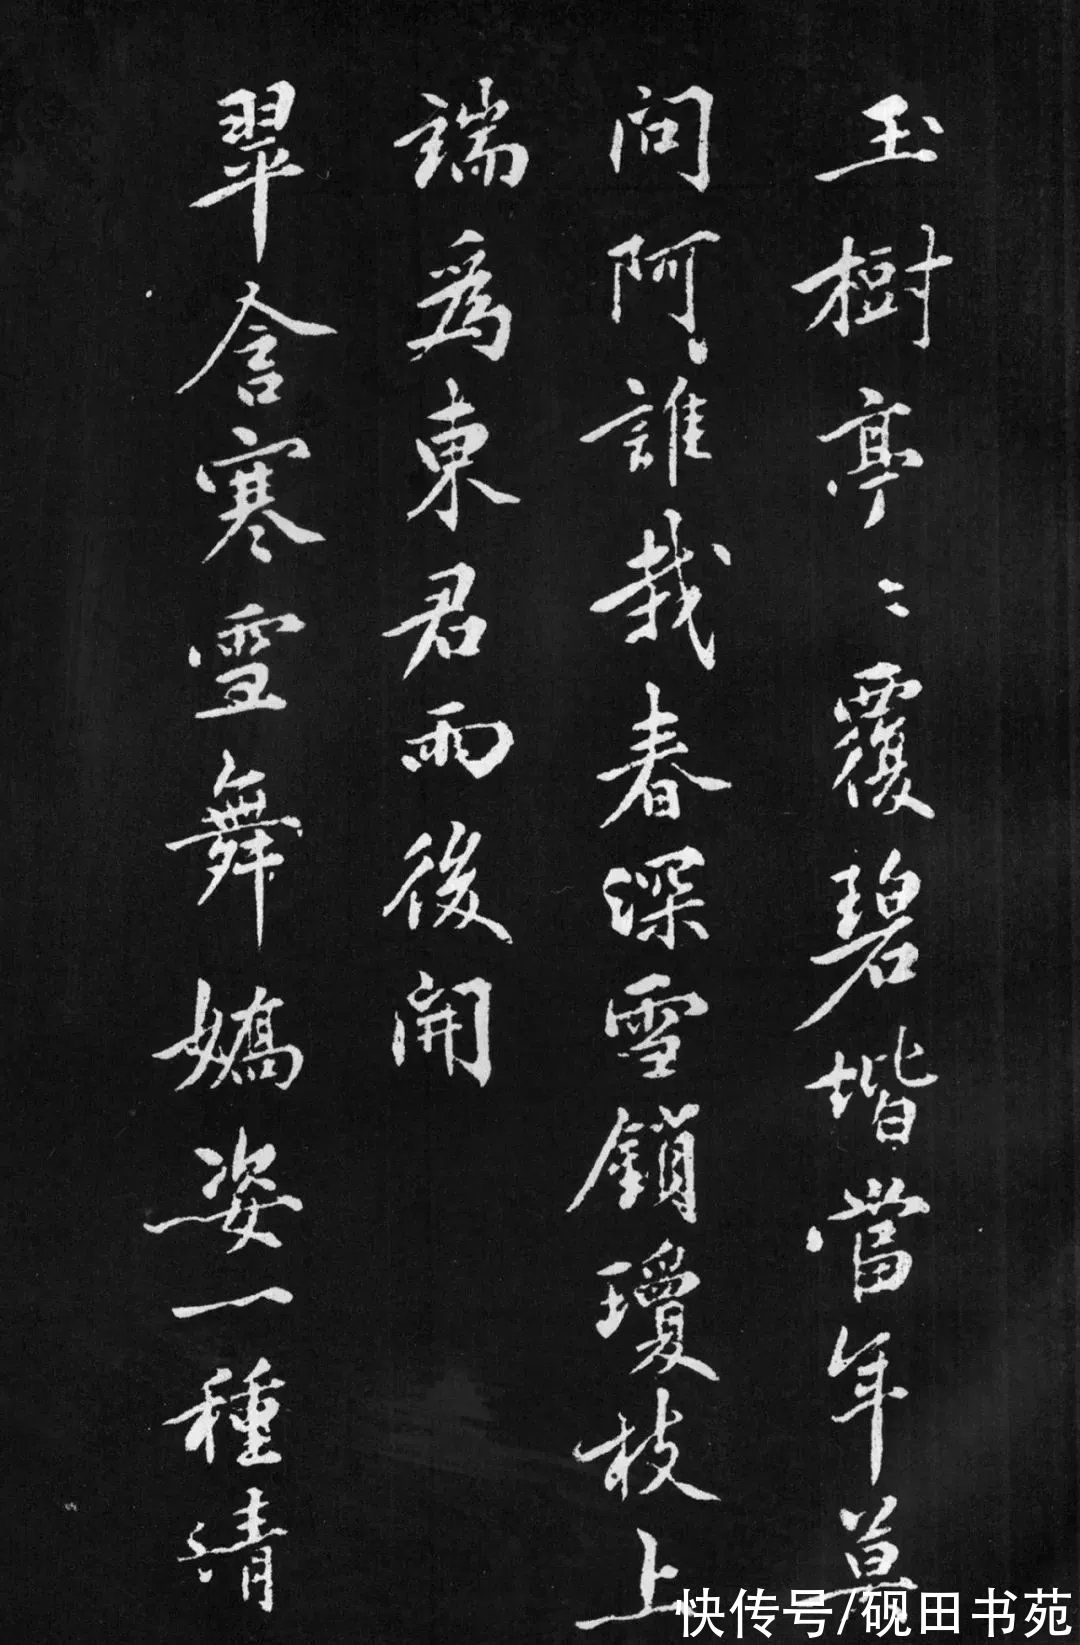 玉樹亭〻覆碧堦當年莫
問阿誰栽春深雪鎖瓊枝上
端爲東君雨後開
翠含寒雪舞嬌姿一種清
快传号/砚田书苑